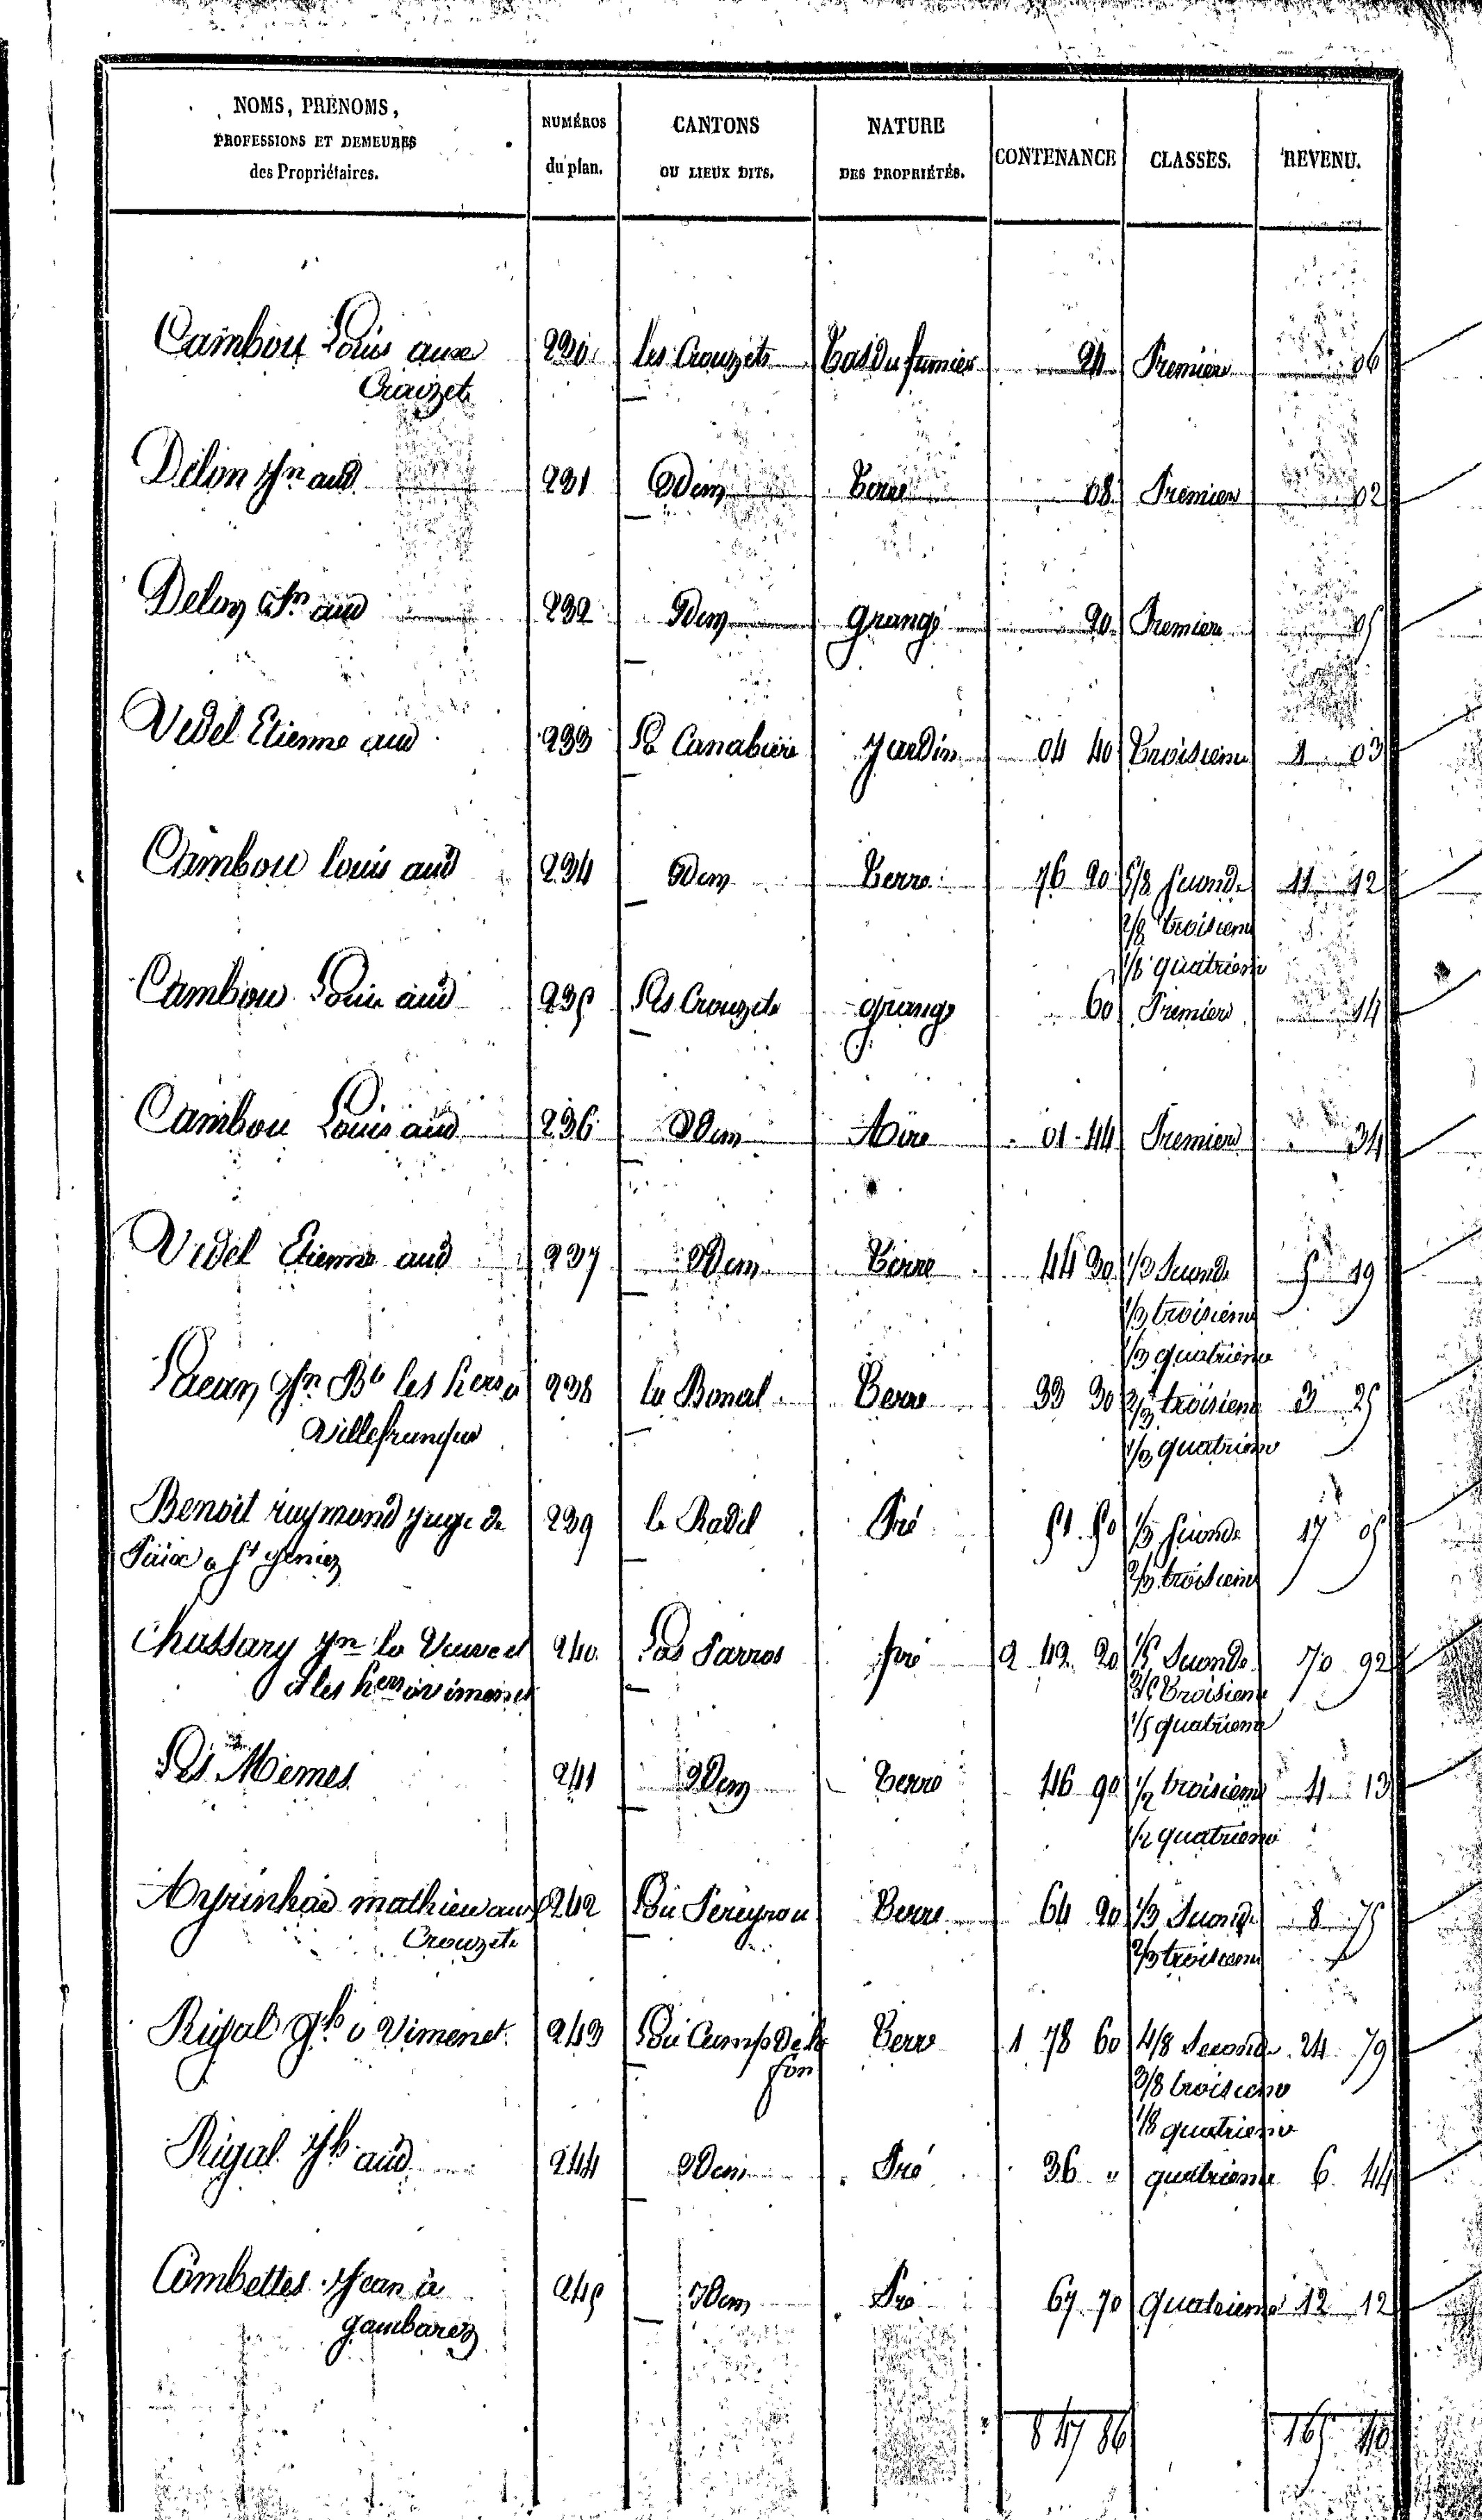 NOMS, PRÉNOMS,
PROFESSIONS ET DEMEURES
des Propriétaires.
NUMÉROS
du plan.
CANTONS
OU LIEUX DITS.
NATURE
DES PROPRIÉTÉS.
CONTENANCE
CLASSES.
REVENU.
Cambou Louis aux 230 les Crouzets Tas du fumier 24 Premiere 06
Crouzets
Delon Jn aud 231 Idem Terre 08 Premiere 02
Delon Jn aud 232 Idem Grange 20 Premiere 05
Vedel Etienne aud 233 La Canabiere Jardin 04 40 Troisieme 1 03
Cambou louis aud 234 Idem Terre 76 20 5/8 Seconde 11 12
2/8 troisieme
1/8 quatrieme
Cambou Louis aud 235 Les Crouzets grange 60 Premiere 14
Cambou Louis aud 236 Idem Aire 01 44 Premiere 34
Vedel Etienne aud 237 Idem Terre 44 30 1/3 Seconde 5 19
1/3 troisieme
1/3 quatrieme
Jn Bte les hers a 238 la Bonal Terre 33 30 2/3 troisieme 3 25
Villefranque
1/3 quatrieme
Benoit raymond juge de 239 le Radel Pré 51 50 1/3 Seconde 17 05
Paix a St geniez
2/3 troisieme
Chassary Jn la Veuve et 240 Las Parros pré 2 42 20 1/5 Seconde 70 92
et les hers a vimenet
3/5 Troisieme
1/5 quatrieme
Les Mêmes 241 Idem Terre 46 90 1/2 troisieme 4 13
1/2 quatrieme
Ayrinhac mathieu aux 242 Lou Pereyrou Terre 64 20 1/3 Seconde 8 75
Crouzets
2/3 troisieme
Rigal Jh a Vimenet 243 Lou Camp de la Terre 1 78 60 4/8 Seconde 24 79
fon
3/8 troisieme
1/8 quatrieme
Rigal Jh aud 244 Idem Pré 36 " quatrieme 6 44
Combettes Jean à 245 Idem Pré 67 70 quatrieme 12 12
gambarez
8 47 86 165 40